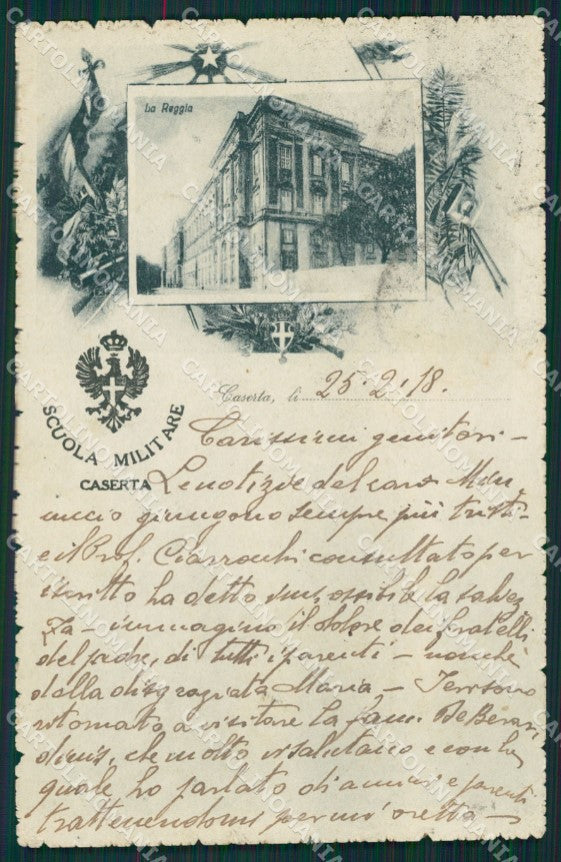 La Reggia
SCUOLA MILITARE
CASERTA
Caserta, li 25.2.18.
Carissimi genitori -
Le notizie del caro Min
uccio giungono sempre più tristi -
e il Prof. Ciarrocchi consultato per
iscritto ha detto impossibile la salvez
za - immagino il dolore dei fratelli
del padre, di tutti i parenti - nonchè
della disgraziata Maria - Ieri sono
ritornato a visitare la fam. De Berar
dinis, che molto vi salutano e con la
quale ho parlato di amici e parenti
trattenendomi per un'oretta -
CARTOLINOMANIA